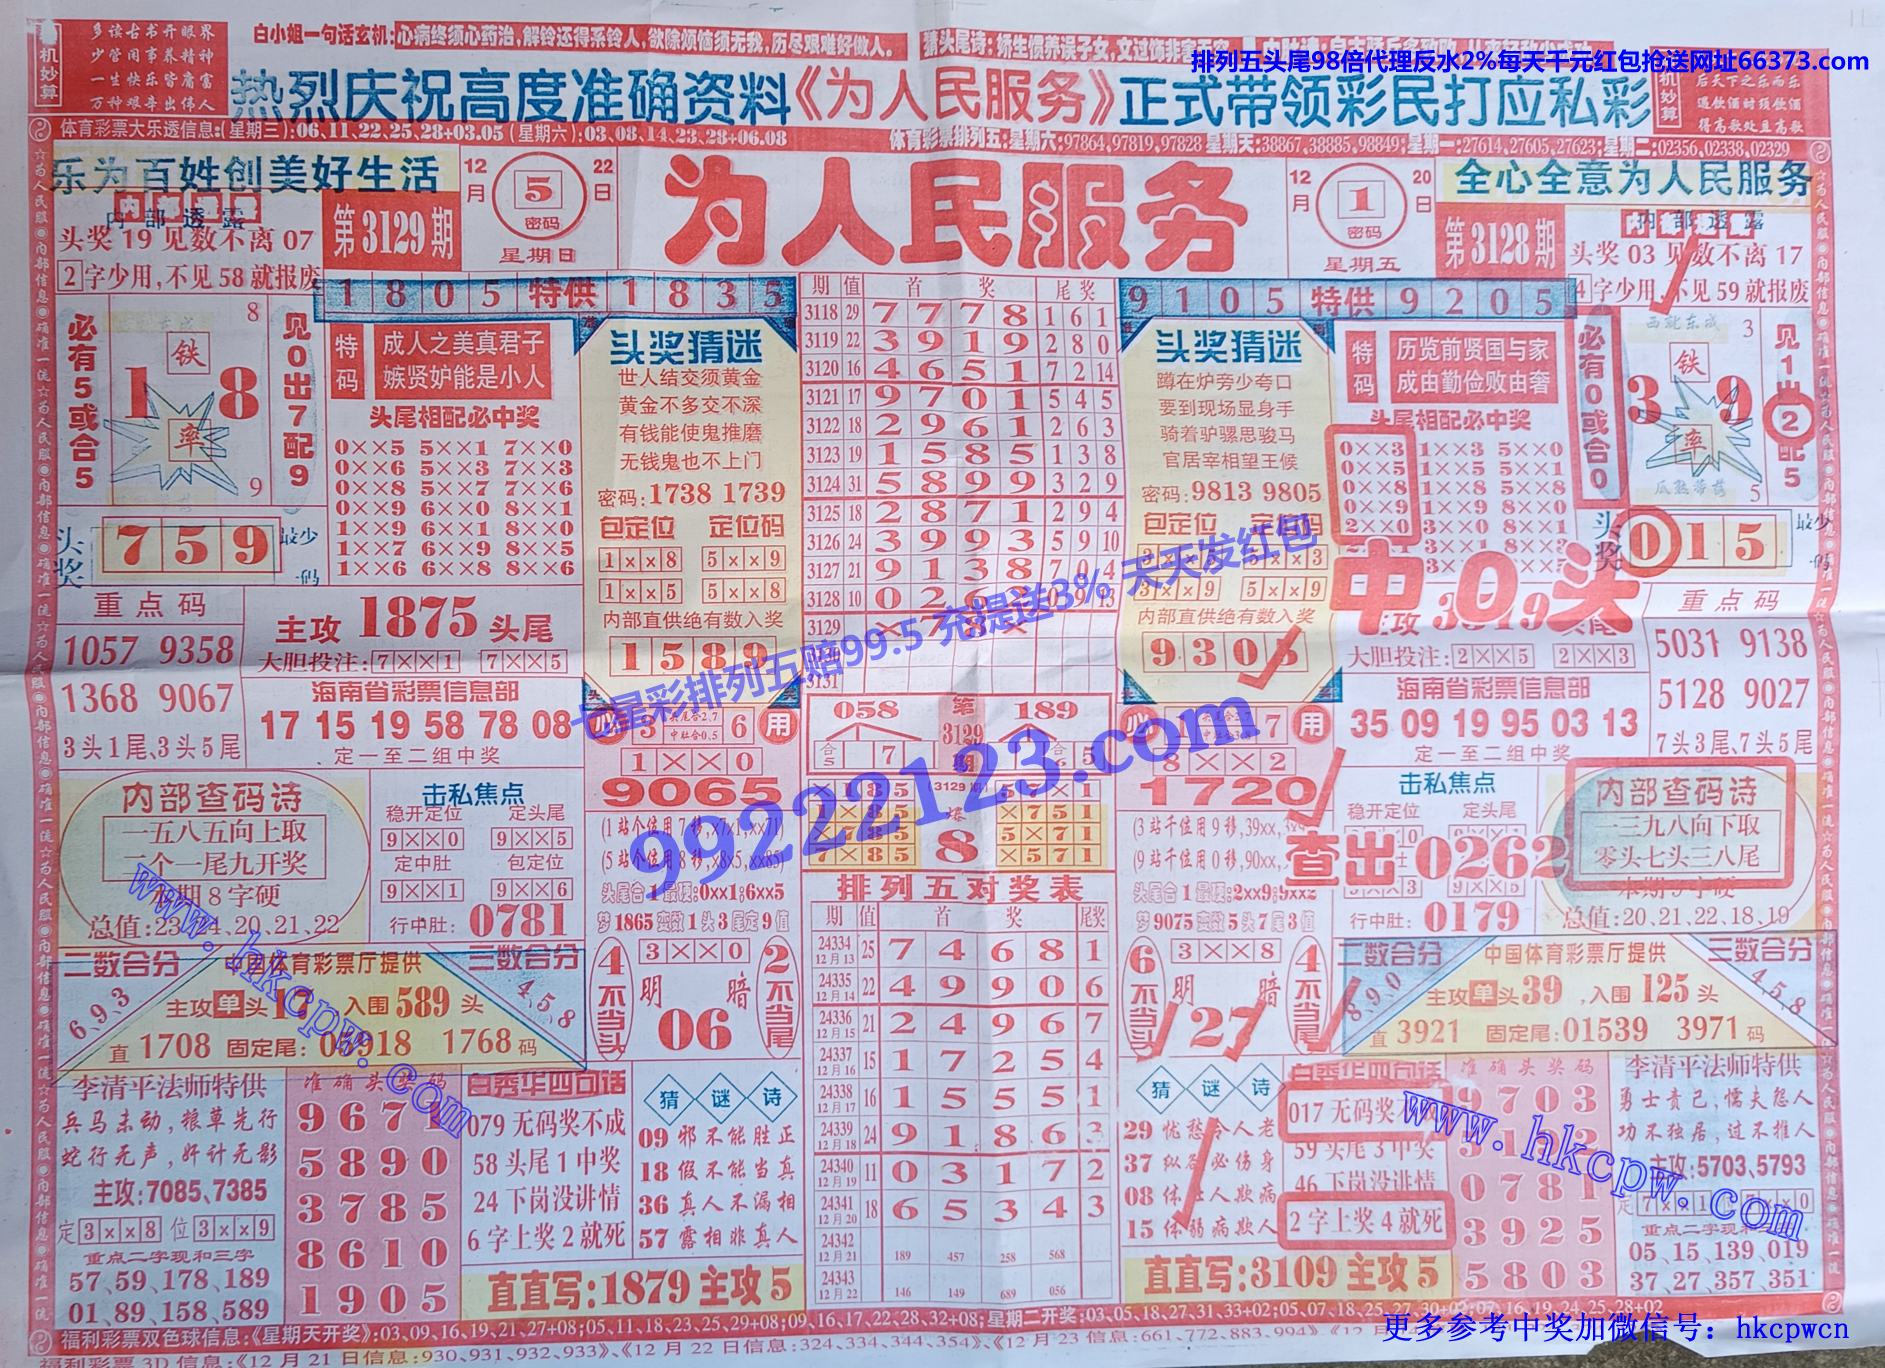 机妙算
多读古书开眼界
少管闲事养精神
一生快乐皆庸富
万种艰辛出伟人
白小姐一句话玄机:心病终须心药治,解铃还得系铃人,欲除烦恼须无我,历尽艰难好做人。
排列五头尾98倍代理反水2%每天千元红包抢送网址66373.com
热烈庆祝高度准确资料《为人民服务》正式带领彩民打应私彩
机妙算
后天下之乐而乐
遇饮酒时须饮酒
得高歌处且高歌
体育彩票大乐透信息:(星期三):06,11,22,25,28+03.05 (星期六):03,08,14,23,28+06.08
体育彩票排列五:星期六:97864,97819,97828 星期天:38867,38885,98849;星期一:27614,27605,27623;星期二:02356,02338,02329
乐为百姓创美好生活
内部透露
头奖 19 见数不离 07
2字少用,不见 58 就报废
第3129期
12月 5 密码 22日
星期日
为人民服务
12月 1 密码 20日
星期五
第3128期
全心全意为人民服务
内部透露
头奖 03 见数不离 17
4字少用,不见 59 就报废
必有5或合5
8
铁
1 8
率
9
见0出7配9
头奖 759 最少一码
1805 特供 1835
特码
成人之美真君子
嫉贤妒能是小人
头尾相配必中奖
0××5 5××1 7××0
0××6 5××3 7××3
0××8 5××7 7××6
0××9 6××0 8××1
1××9 6××1 8××0
1××7 6××9 8××5
1××8 6××8 8××6
头奖猜迷
世人结交须黄金
黄金不多交不深
有钱能使鬼推磨
无钱鬼也不上门
密码:1738 1739
包定位 定位码
1××8 5××9
1××5 5××8
内部直供绝有数入奖
1589
期 值 首奖 尾奖
3118 29 7 7 7 8 1 6 1
3119 22 3 9 1 9 2 8 0
3120 16 4 6 5 1 7 2 14
3121 17 9 7 0 1 5 4 5
3122 18 2 9 6 1 2 6 3
3123 19 1 5 8 5 1 3 8
3124 31 5 8 9 9 3 2 9
3125 18 2 8 7 1 2 9 4
3126 24 3 9 9 3 5 9 10
3127 21 9 1 3 8 7 0 4
3128 10 0 2 6 2 0 9 13
3129 × 7 8 ×
3131
9105 特供 9205
头奖猜迷
蹲在炉旁少夸口
要到现场显身手
骑着驴骡思骏马
官居宰相望王候
密码:9813 9805
包定位 定位码
3××9 5××9
内部直供绝有数入奖
9305
特码
历览前贤国与家
成由勤俭败由奢
头尾相配必中奖
0××3 1××3 5××0
0××5 1××5
0××8 1××8 5××8
0××9 3××1
2××0 3××0 8××1
必有0或合0
西就东成 3
铁
3 9
率
瓜熟蒂落 5
见1出2配5
头奖 015 最少一码
中0头
重点码
1057 9358
1368 9067
3头1尾、3头5尾
主攻 1875 头尾
大胆投注:7××1 7××5
海南省彩票信息部
17 15 19 58 78 08
定一至二组中奖
大胆投注:2××5 2××3
海南省彩票信息部
35 09 19 95 03 13
定一至二组中奖
重点码
5031 9138
5128 9027
7头3尾、7头5尾
七星彩排列五赔99.5 充提送3% 天天发红包
99222123.com
内部查码诗
一五八五向上取
二个一尾九开奖
本期8字硬
总值:23,24,20,21,22
击私焦点
稳开定位 定头尾
9××0 9××5
定中肚 包定位
9××1 9××6
行中肚:0781
3 6 用
1××0
9065
头尾合1最硬:0xx1;6xx5
梦1865变数1头3尾定9值
4不当头
3××0
明 暗
06
2不当尾
058 第3129期 189
×185 57×1
×751
5×71
7×85 8 ×571
排列五对奖表
期 值 首奖 尾奖
24334 12月13 25 7 4 6 8 1
24335 12月14 22 4 9 9 0 6
24336 12月15 21 2 4 9 6 7
24337 12月16 15 1 7 2 5 4
24338 12月17 16 1 5 5 5 1
24339 12月18 24 9 1 8 6 3
24340 12月19 11 0 3 1 7 2
24341 12月20 18 6 5 3 4 3
24342 12月21 189 457 258 568
24343 12月22 146 149 689 056
1 7 用
8××2
1720
头尾合1最硬:2xx9;9xx2
梦9075变数5头7尾3值
6不当头
3××8
明 暗
27
4不当尾
击私焦点
稳开定位 定头尾
行中肚:0179
查出0262
内部查码诗
一三九八向下取
零头七头三八尾
总值:20,21,22,18,19
二数合分
6、9、3
中国体育彩票厅提供
主攻单头17,入围589头
直1708 固定尾:05918 1768码
三数合分
4、5、8
二数合分
8、9、0
中国体育彩票厅提供
主攻单头39,入围125头
直3921 固定尾:01539 3971码
三数合分
4、5、8
李清平法师特供
兵马未动,粮草先行
蛇行无声,奸针无影
主攻:7085、7385
定3××8 位3××9
重点二字现和三字
57,59,178,189
01,89,158,589
准确头奖码
9671
5890
3785
8610
1905
白秀华四句话
079无码奖不成
58头尾1中奖
24下岗没讲情
6字上奖2就死
猜谜诗
09 邪不能胜正
18 假不能当真
36 真人不漏相
57 露相非真人
直直写:1879主攻5
猜谜诗
29 忧愁令人老
37 纵欲必伤身
15 体弱病欺人
白秀华四句话
017无码奖不成
59头尾3中奖
46下岗没讲情
2字上奖4就死
直直写:3109主攻5
准确头奖码
9703
0781
3925
5803
李清平法师特供
勇士责己,懦夫怨人
功不独居,过不推人
主攻:5703、5793
05,15,139,019
37,27,357,351
www.hkcpw.com
www.hkcpw.com
福利彩票双色球信息:《星期天开奖》:03,09,16,19,21,27+08;05,11,18,23,25,29+08;
更多参考中奖加微信号: hkcpwcn
福利彩票3D信息:《12月21日信息:930,931,932,933》、《12月22日信息:324,334,344,354》、《12月23信息:661,772,883,994》